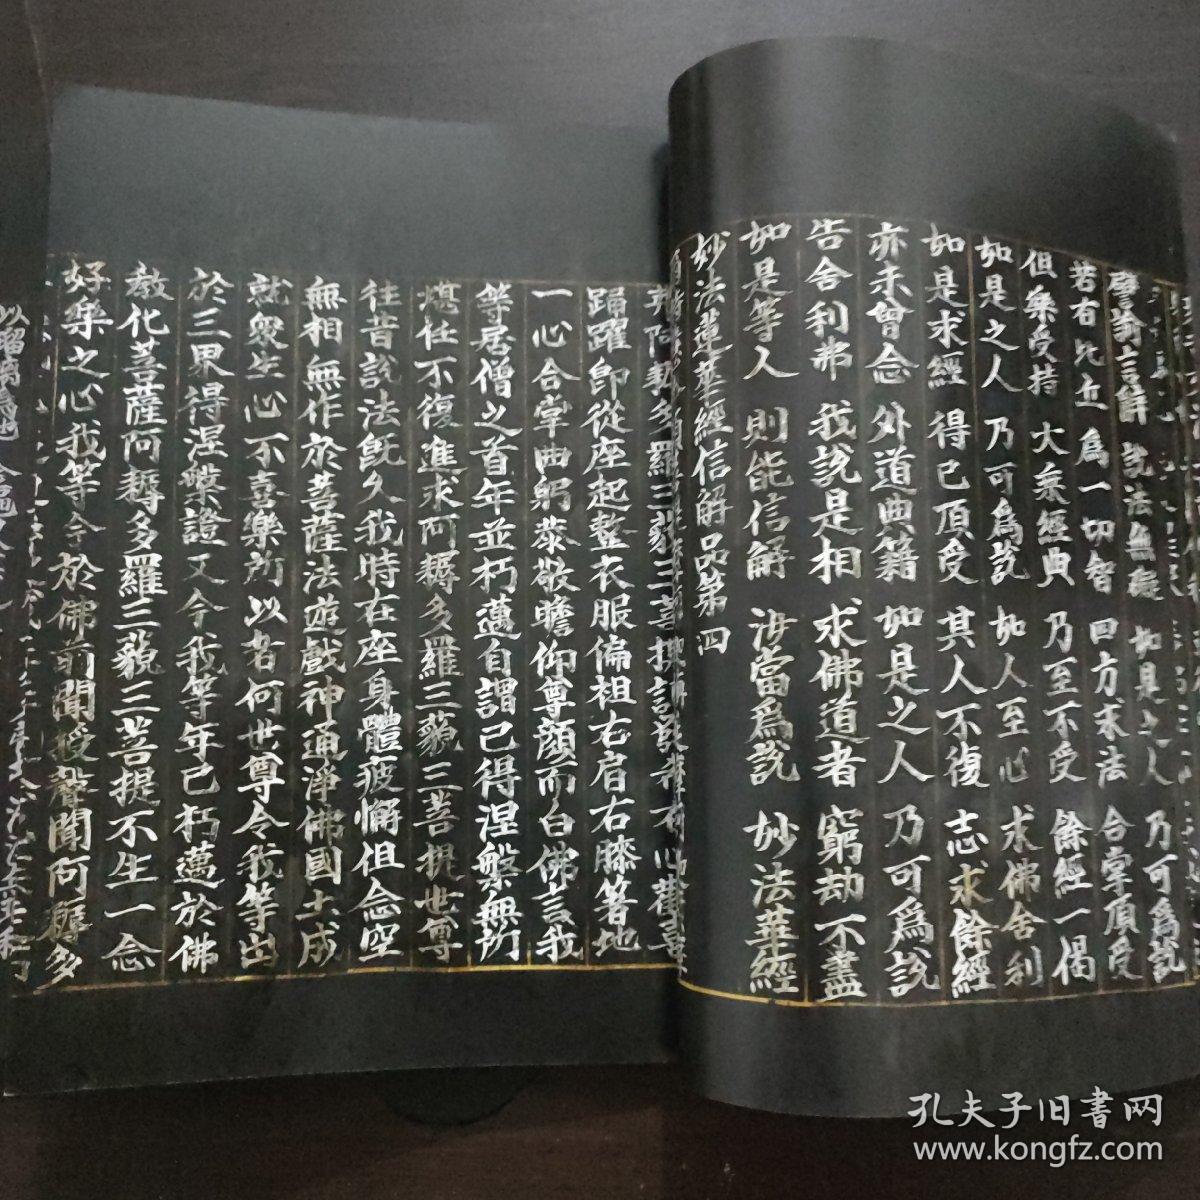 譬喻言辭 說法無礙 如是之人 乃可為說
若有比丘 為一切智 四方求法 合掌頂受
但樂受持 大乘經典 乃至不受 餘經一偈
如是之人 乃可為說 如人至心 求佛舍利
如是求經 得已頂受 其人不復 志求餘經
亦未曾念 外道典籍 如是之人 乃可為說
告舍利弗 我說是相 求佛道者 窮劫不盡
如是等人 則能信解 汝當為說 妙法華經
妙法蓮華經信解品第四
踊躍即從座起整衣服偏袒右肩右膝著地
一心合掌曲躬恭敬瞻仰尊顏而白佛言我
等居僧之首年並朽邁自謂已得涅槃無所
堪任不復進求阿耨多羅三藐三菩提世尊
往昔說法既久我時在座身體疲懈但念空
無相無作於菩薩法遊戲神通淨佛國土成
就眾生心不喜樂所以者何世尊令我等出
於三界得涅槃證又今我等年已朽邁於佛
教化菩薩阿耨多羅三藐三菩提不生一念
好樂之心我等今於佛前聞授聲聞阿耨多
孔夫子旧書网
www.kongfz.com